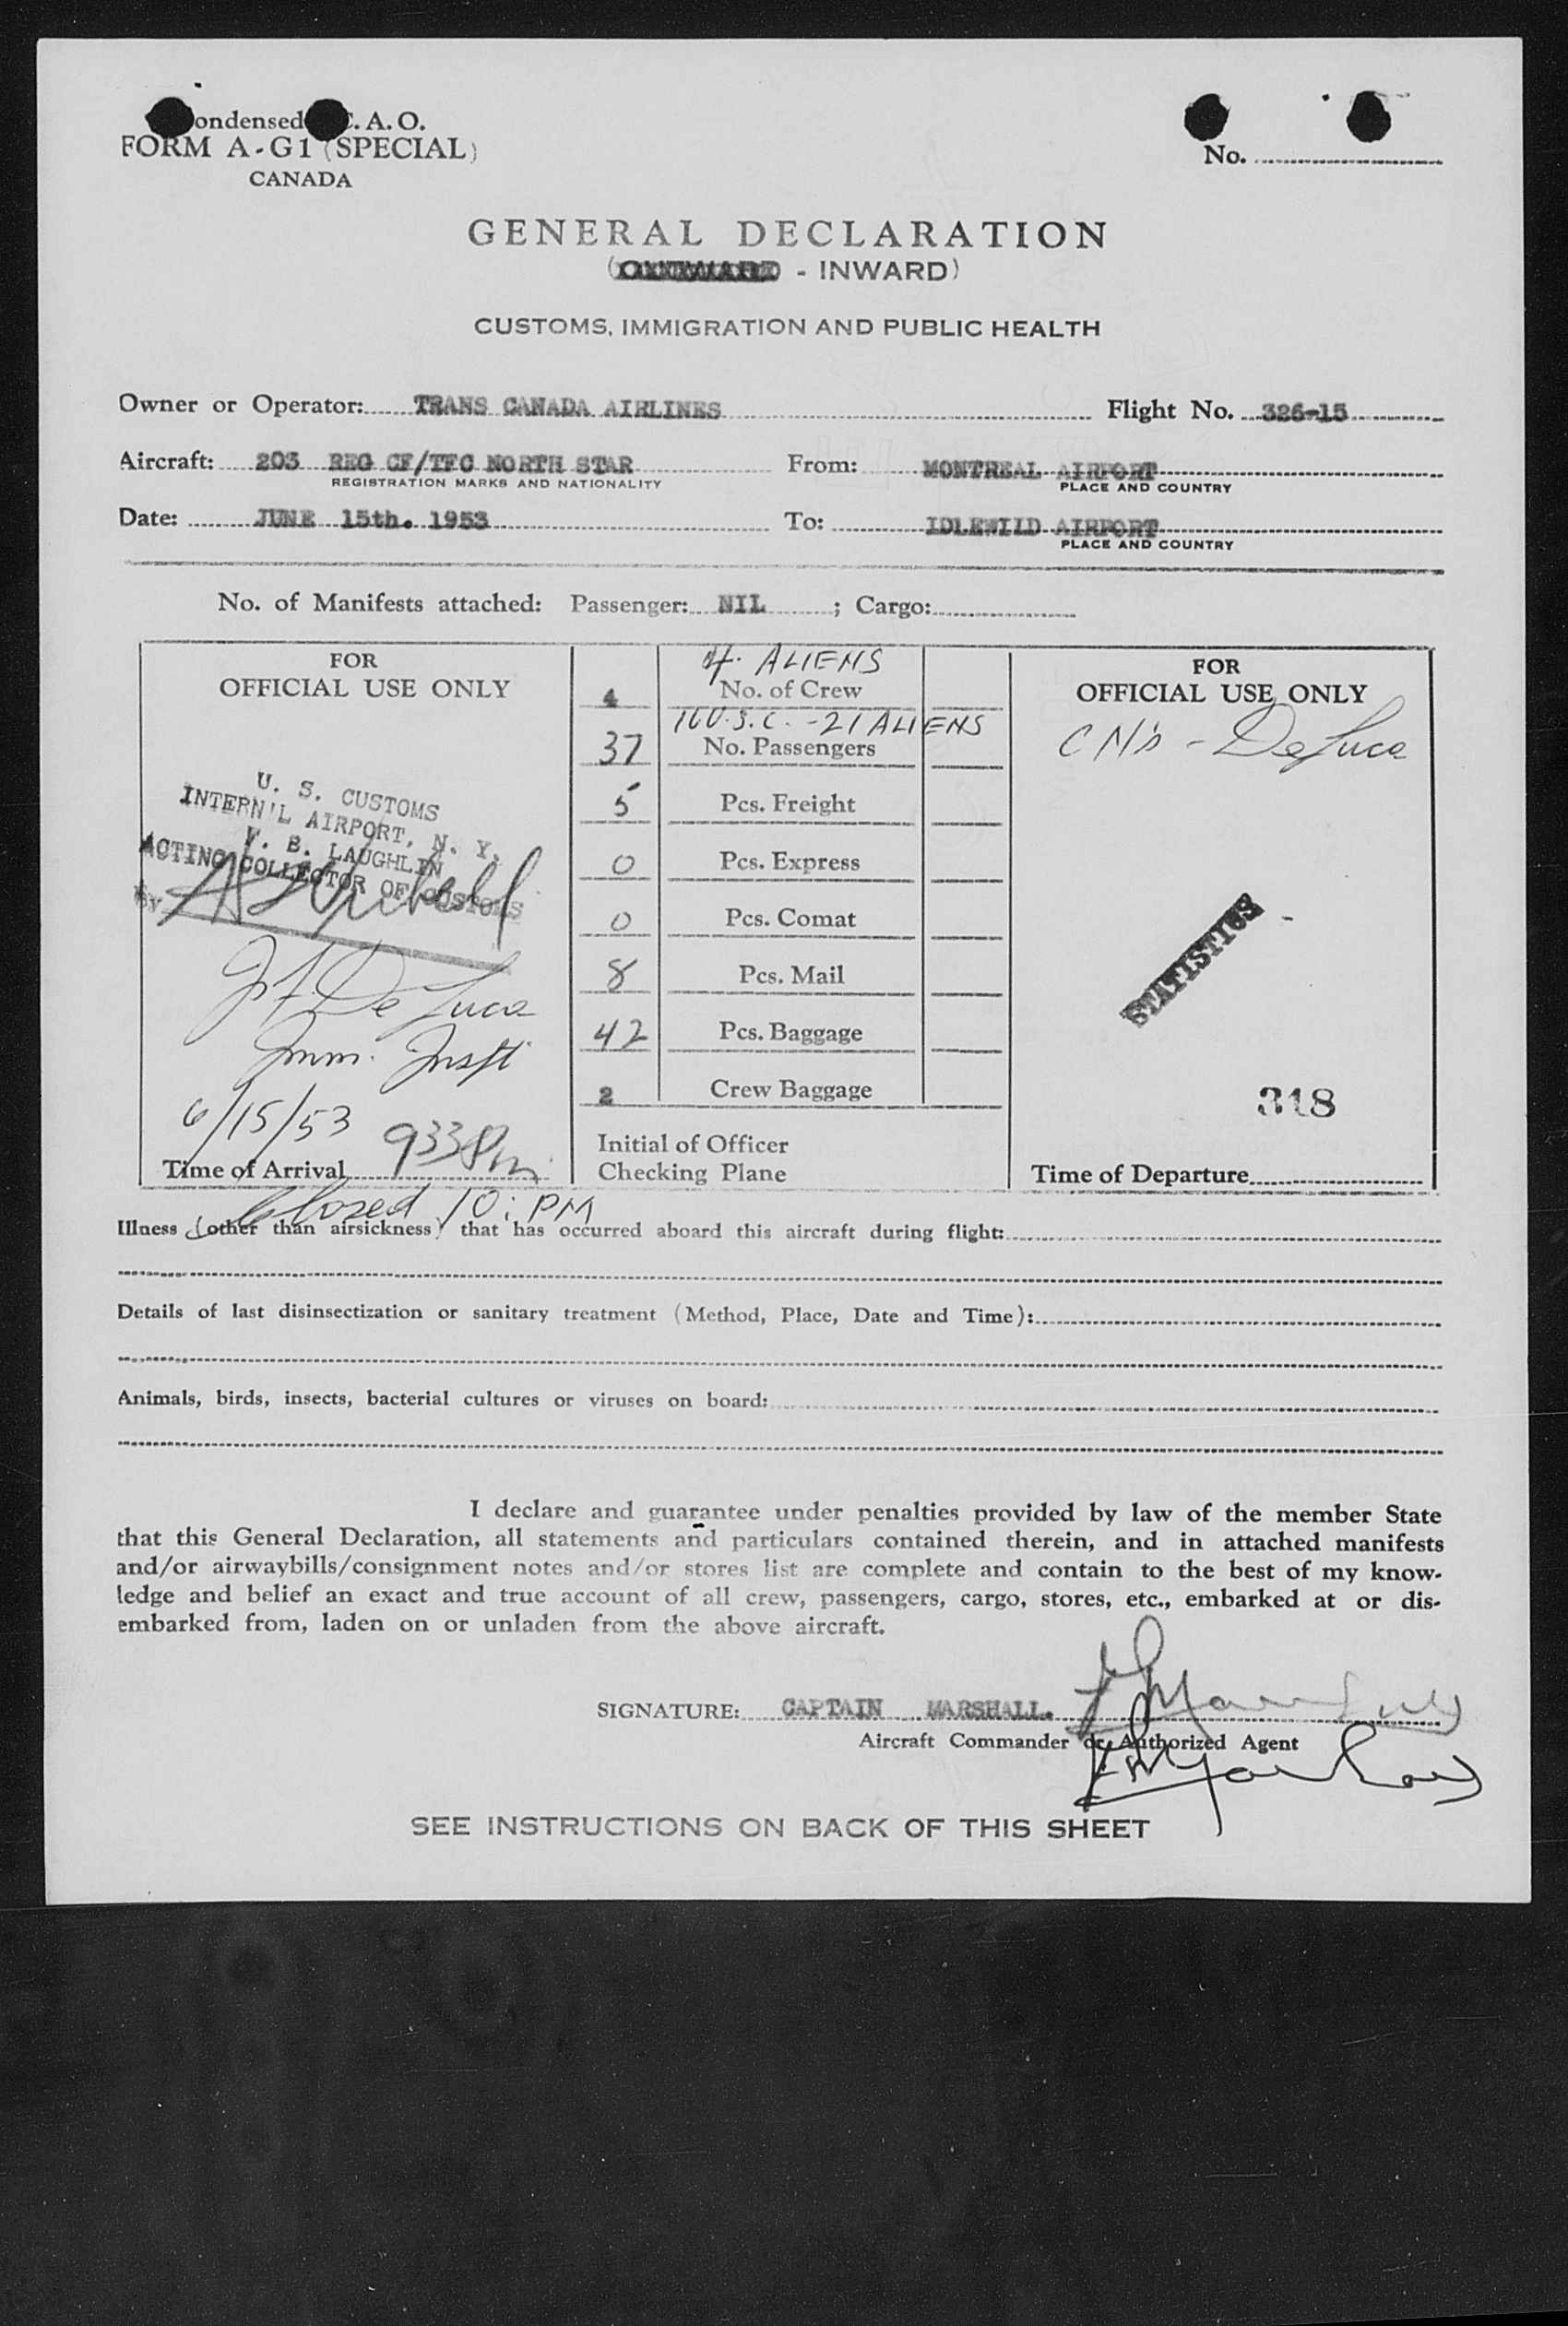 ondensed C.A.O.
FORM A-G1 (SPECIAL)
CANADA
No.
GENERAL DECLARATION
( - INWARD)
CUSTOMS, IMMIGRATION AND PUBLIC HEALTH
Owner or Operator: TRANS CANADA AIRLINES Flight No. 326-15
Aircraft: 203 REG CF/TFC NORTH STAR From: MONTREAL AIRPORT
REGISTRATION MARKS AND NATIONALITY PLACE AND COUNTRY
Date: JUNE 15th. 1953 To: IDLEWILD AIRPORT
PLACE AND COUNTRY
No. of Manifests attached: Passenger: NIL ; Cargo:
FOR
OFFICIAL USE ONLY
U. S. CUSTOMS
INTERN'L AIRPORT, N. Y.
B. LAUGHLIN
ACTING COLLECTOR OF CUSTOMS
By
De Luca
Imm. Inspt
6/15/53
Time of Arrival 933 Pm
Closed 10: PM
4. ALIENS
4 No. of Crew
16 U.S.C. - 21 ALIENS
37 No. Passengers
5 Pcs. Freight
0 Pcs. Express
0 Pcs. Comat
8 Pcs. Mail
42 Pcs. Baggage
2 Crew Baggage
Initial of Officer
Checking Plane
FOR
OFFICIAL USE ONLY
CN's - DeLuca
STATISTICS
318
Time of Departure
Illness (other than airsickness) that has occurred aboard this aircraft during flight:
Details of last disinsectization or sanitary treatment (Method, Place, Date and Time):
Animals, birds, insects, bacterial cultures or viruses on board:
I declare and guarantee under penalties provided by law of the member State
that this General Declaration, all statements and particulars contained therein, and in attached manifests
and/or airwaybills/consignment notes and/or stores list are complete and contain to the best of my know-
ledge and belief an exact and true account of all crew, passengers, cargo, stores, etc., embarked at or dis-
embarked from, laden on or unladen from the above aircraft.
SIGNATURE: CAPTAIN MARSHALL.
Aircraft Commander or Authorized Agent
SEE INSTRUCTIONS ON BACK OF THIS SHEET